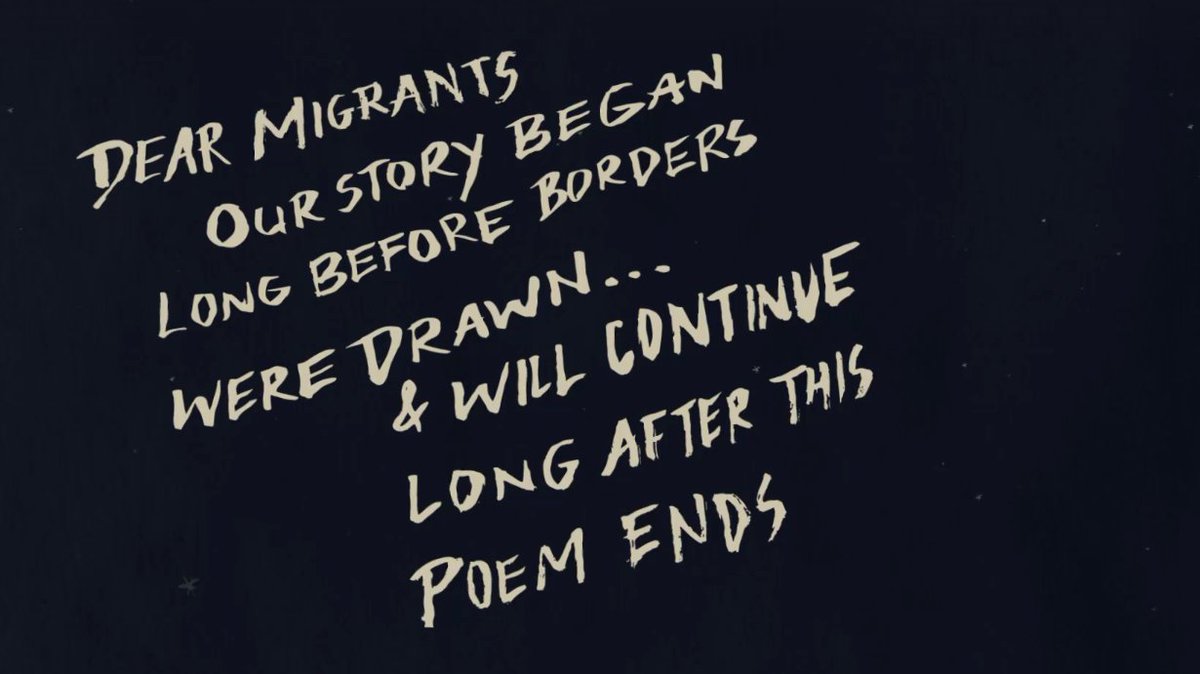 DEAR MIGRANTS
OUR STORY BEGAN
LONG BEFORE BORDERS
WERE DRAWN...
& WILL CONTINUE
LONG AFTER THIS
POEM ENDS